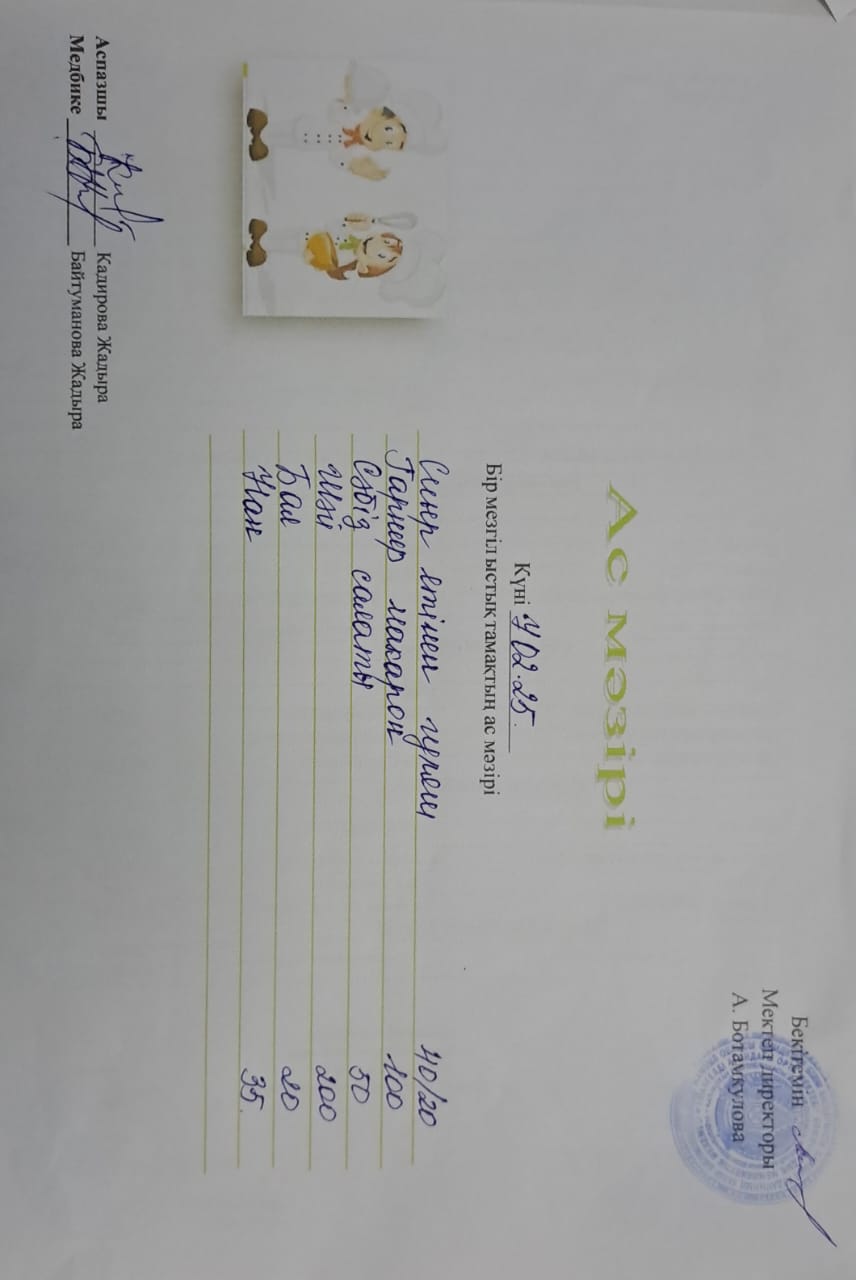 Бекітемін
Мектеп директоры
А. Ботамкулова
Ас мәзірі
Күні 7 02.25.
Бір мезгіл ыстық тамақтың ас мәзірі
Сиыр етінен гуляш 70/20
Гарнир макарон 100
Сәбіз салаты 50
Шәй 200
Бал 20
Нан 35.
Аспазшы Кадирова Жадыра
Медбике Байтуманова Жадыра